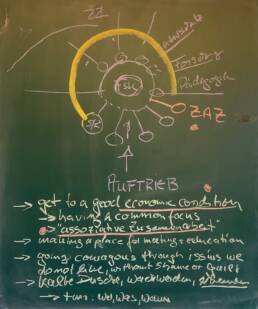 ZZ
Forschung
Pädagogik
ZAZ
AUFTRIEB
→ get to a good economic condition
→ having a common focus
→ "assoziative Zusammenarbeit"
→ making a place for meeting + education
→ going courageous through issues we
do not like, without shame or guilt
→ kalte Dusche, wach werden,
→ tun. wo, was, wann